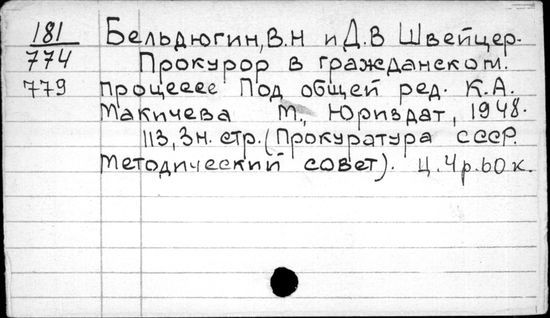 181 Бельдюгин, В.Н и Д.В Швейцер.
774 Прокурор в гражданском.
779 процессе Под общей ред. К.А.
Макичева М., Юриздат, 1948.
113, 3н. стр. (Прокуратура СССР.
Методический совет). Ц. 4р. 60к.